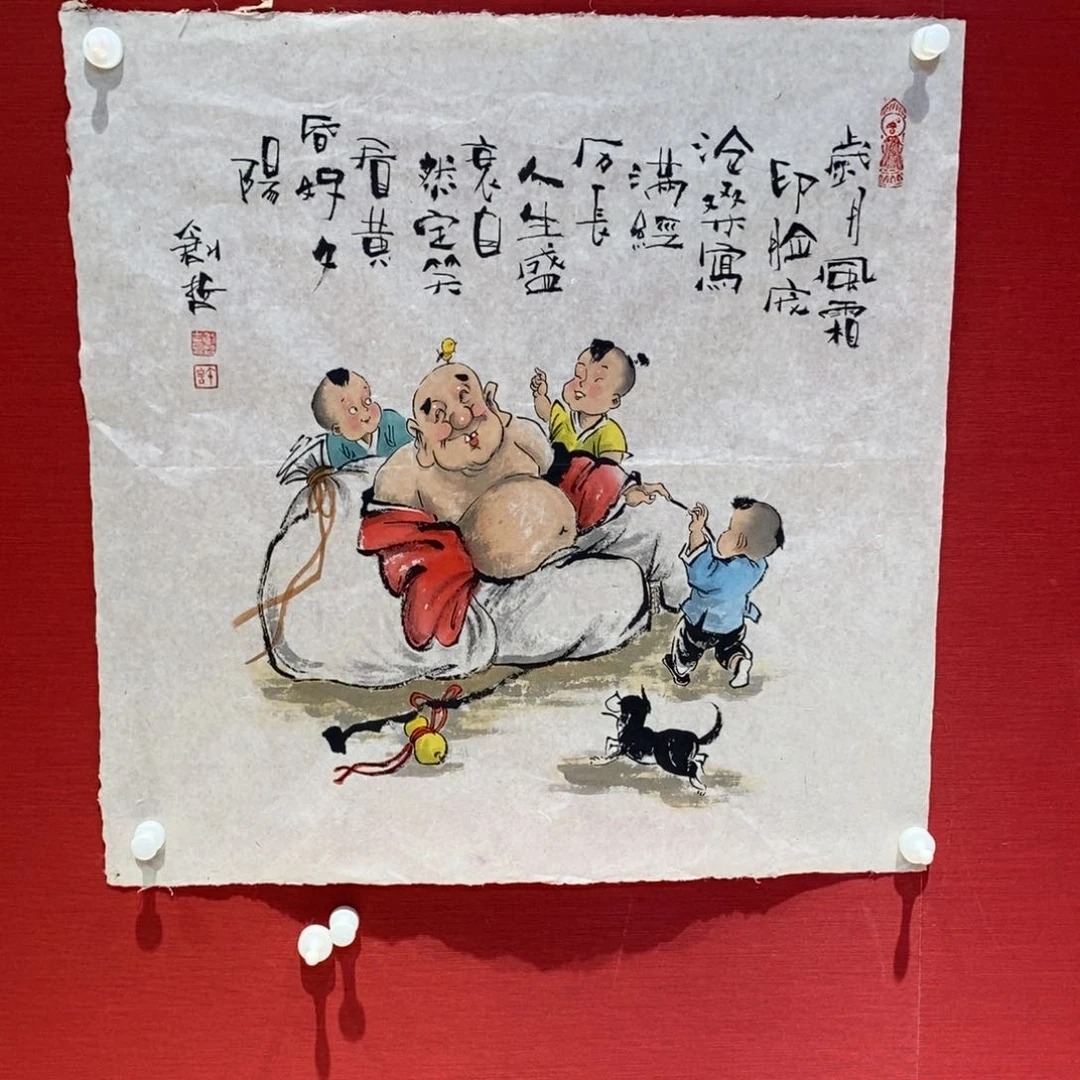 歲月風霜
印臉庞
滄桑寫
滿經
历長
人生盛
衰自
然定笑
看黃
昏好夕
陽